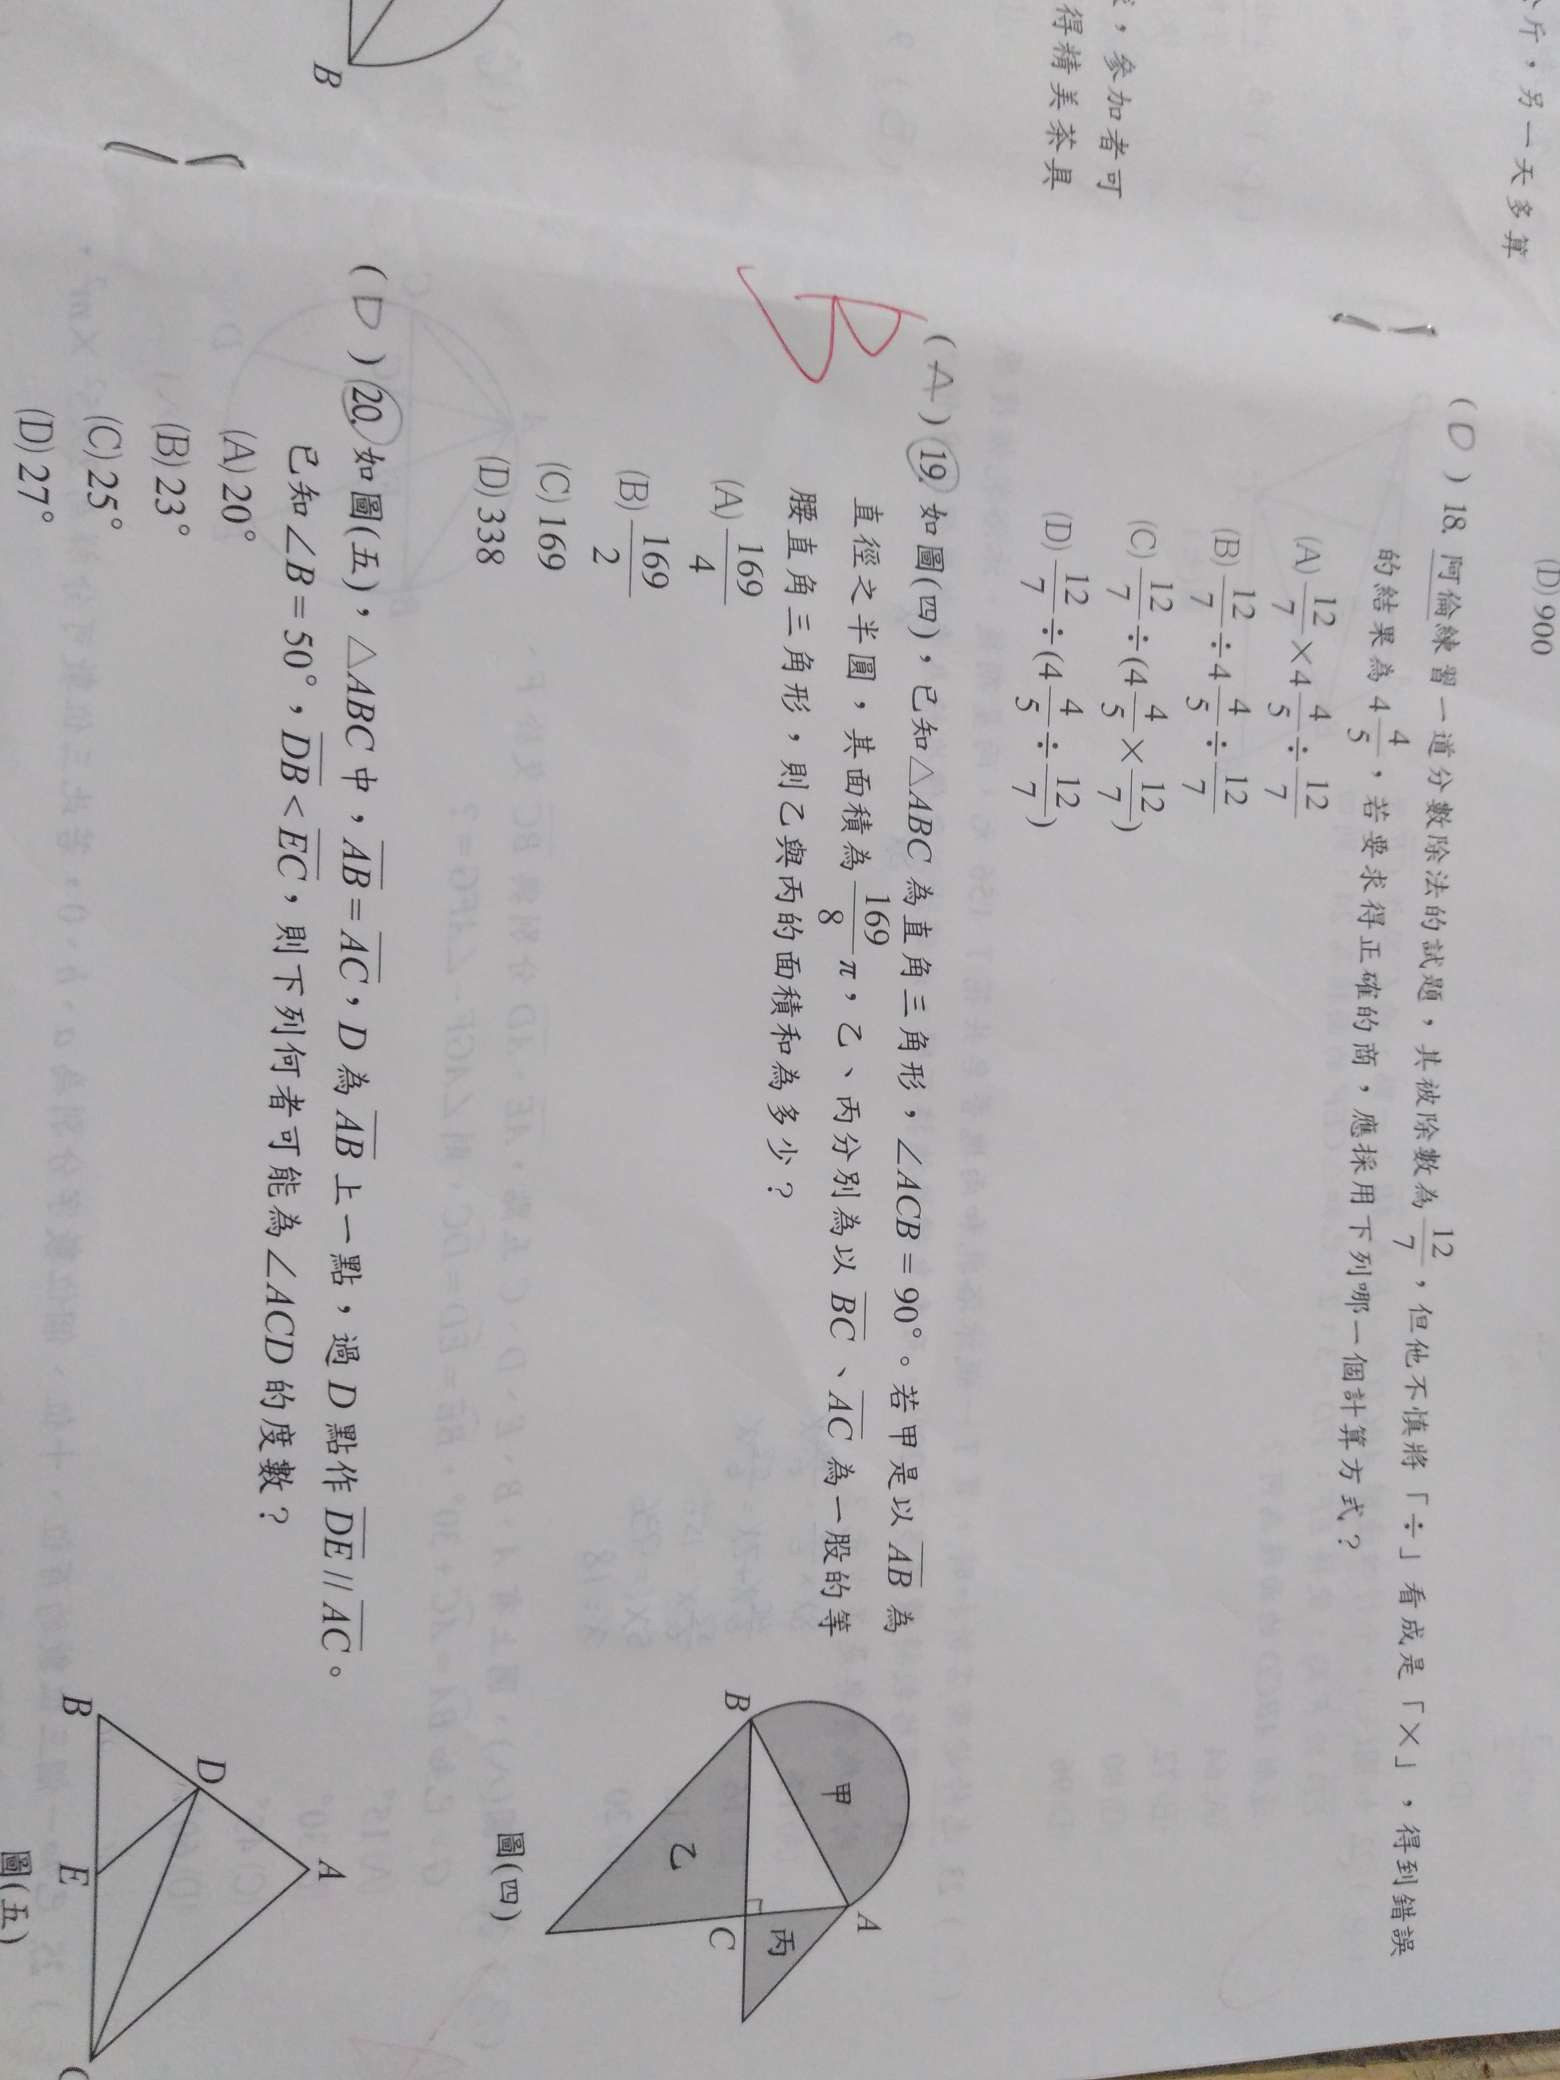 斤,另一天多算
,參加者可
得精美茶具
B
(D) 900
( D ) 18. 阿倫練習一道分數除法的試題,其被除數為 12/7,但他不慎將「÷」看成是「×」,得到錯誤
的結果為 4 4/5,若要求得正確的商,應採用下列哪一個計算方式?
(A) 12/7 × 4 4/5 ÷ 12/7
(B) 12/7 ÷ 4 4/5 ÷ 12/7
(C) 12/7 ÷ (4 4/5 × 12/7)
(D) 12/7 ÷ (4 4/5 ÷ 12/7)
B
( A ) 19. 如圖(四),已知△ABC 為直角三角形,∠ACB = 90°。若甲是以 AB 為
直徑之半圓,其面積為 169/8 π,乙、丙分別為以 BC、AC 為一股的等
腰直角三角形,則乙與丙的面積和為多少?
(A) 169/4
(B) 169/2
(C) 169
(D) 338
B
甲
A
乙
C
丙
圖(四)
( D ) 20. 如圖(五),△ABC 中,AB = AC,D 為 AB 上一點,過 D 點作 DE // AC。
已知∠B = 50°,DB < EC,則下列何者可能為∠ACD 的度數?
(A) 20°
(B) 23°
(C) 25°
(D) 27°
A
D
B
E
C
圖(五)